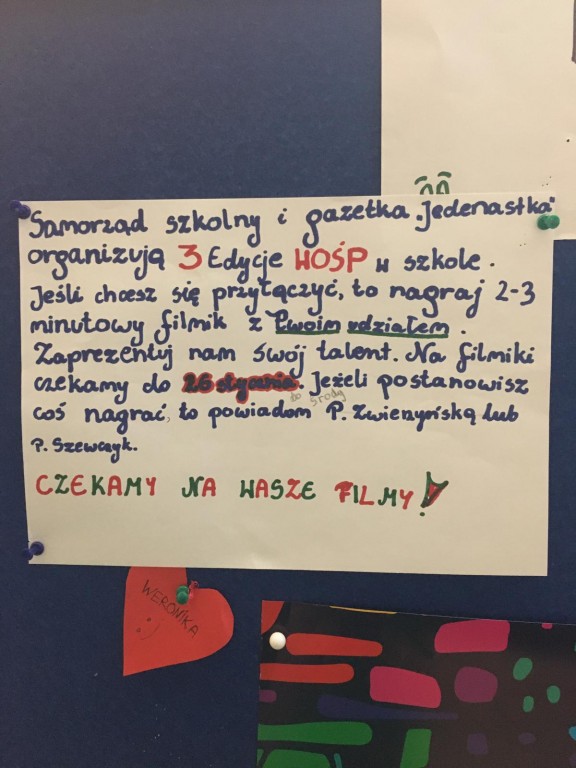 Samorząd szkolny i gazetka „Jedenastka"
organizują 3 Edycje WOŚP w szkole.
Jeśli chcesz się przyłączyć, to nagraj 2-3
minutowy filmik z Twoim udziałem.
Zaprezentuj nam swój talent. Na filmiki
czekamy do 26 stycznia. Jeżeli postanowisz
do środy
coś nagrać, to powiadom P. Zwierzyńską lub
P. Szewczyk.
CZEKAMY NA WASZE FILMY!
WERONIKA
:)